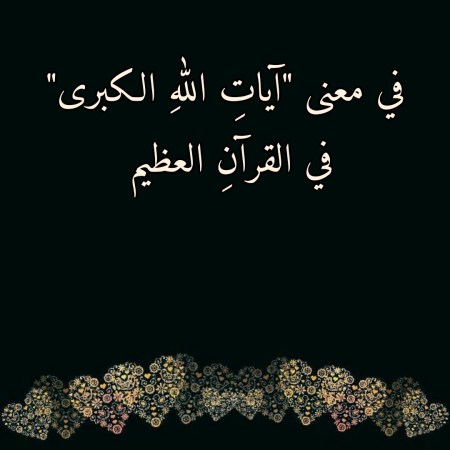 في معنى "آياتِ اللهِ الكبرى"
في القرآنِ العظيم